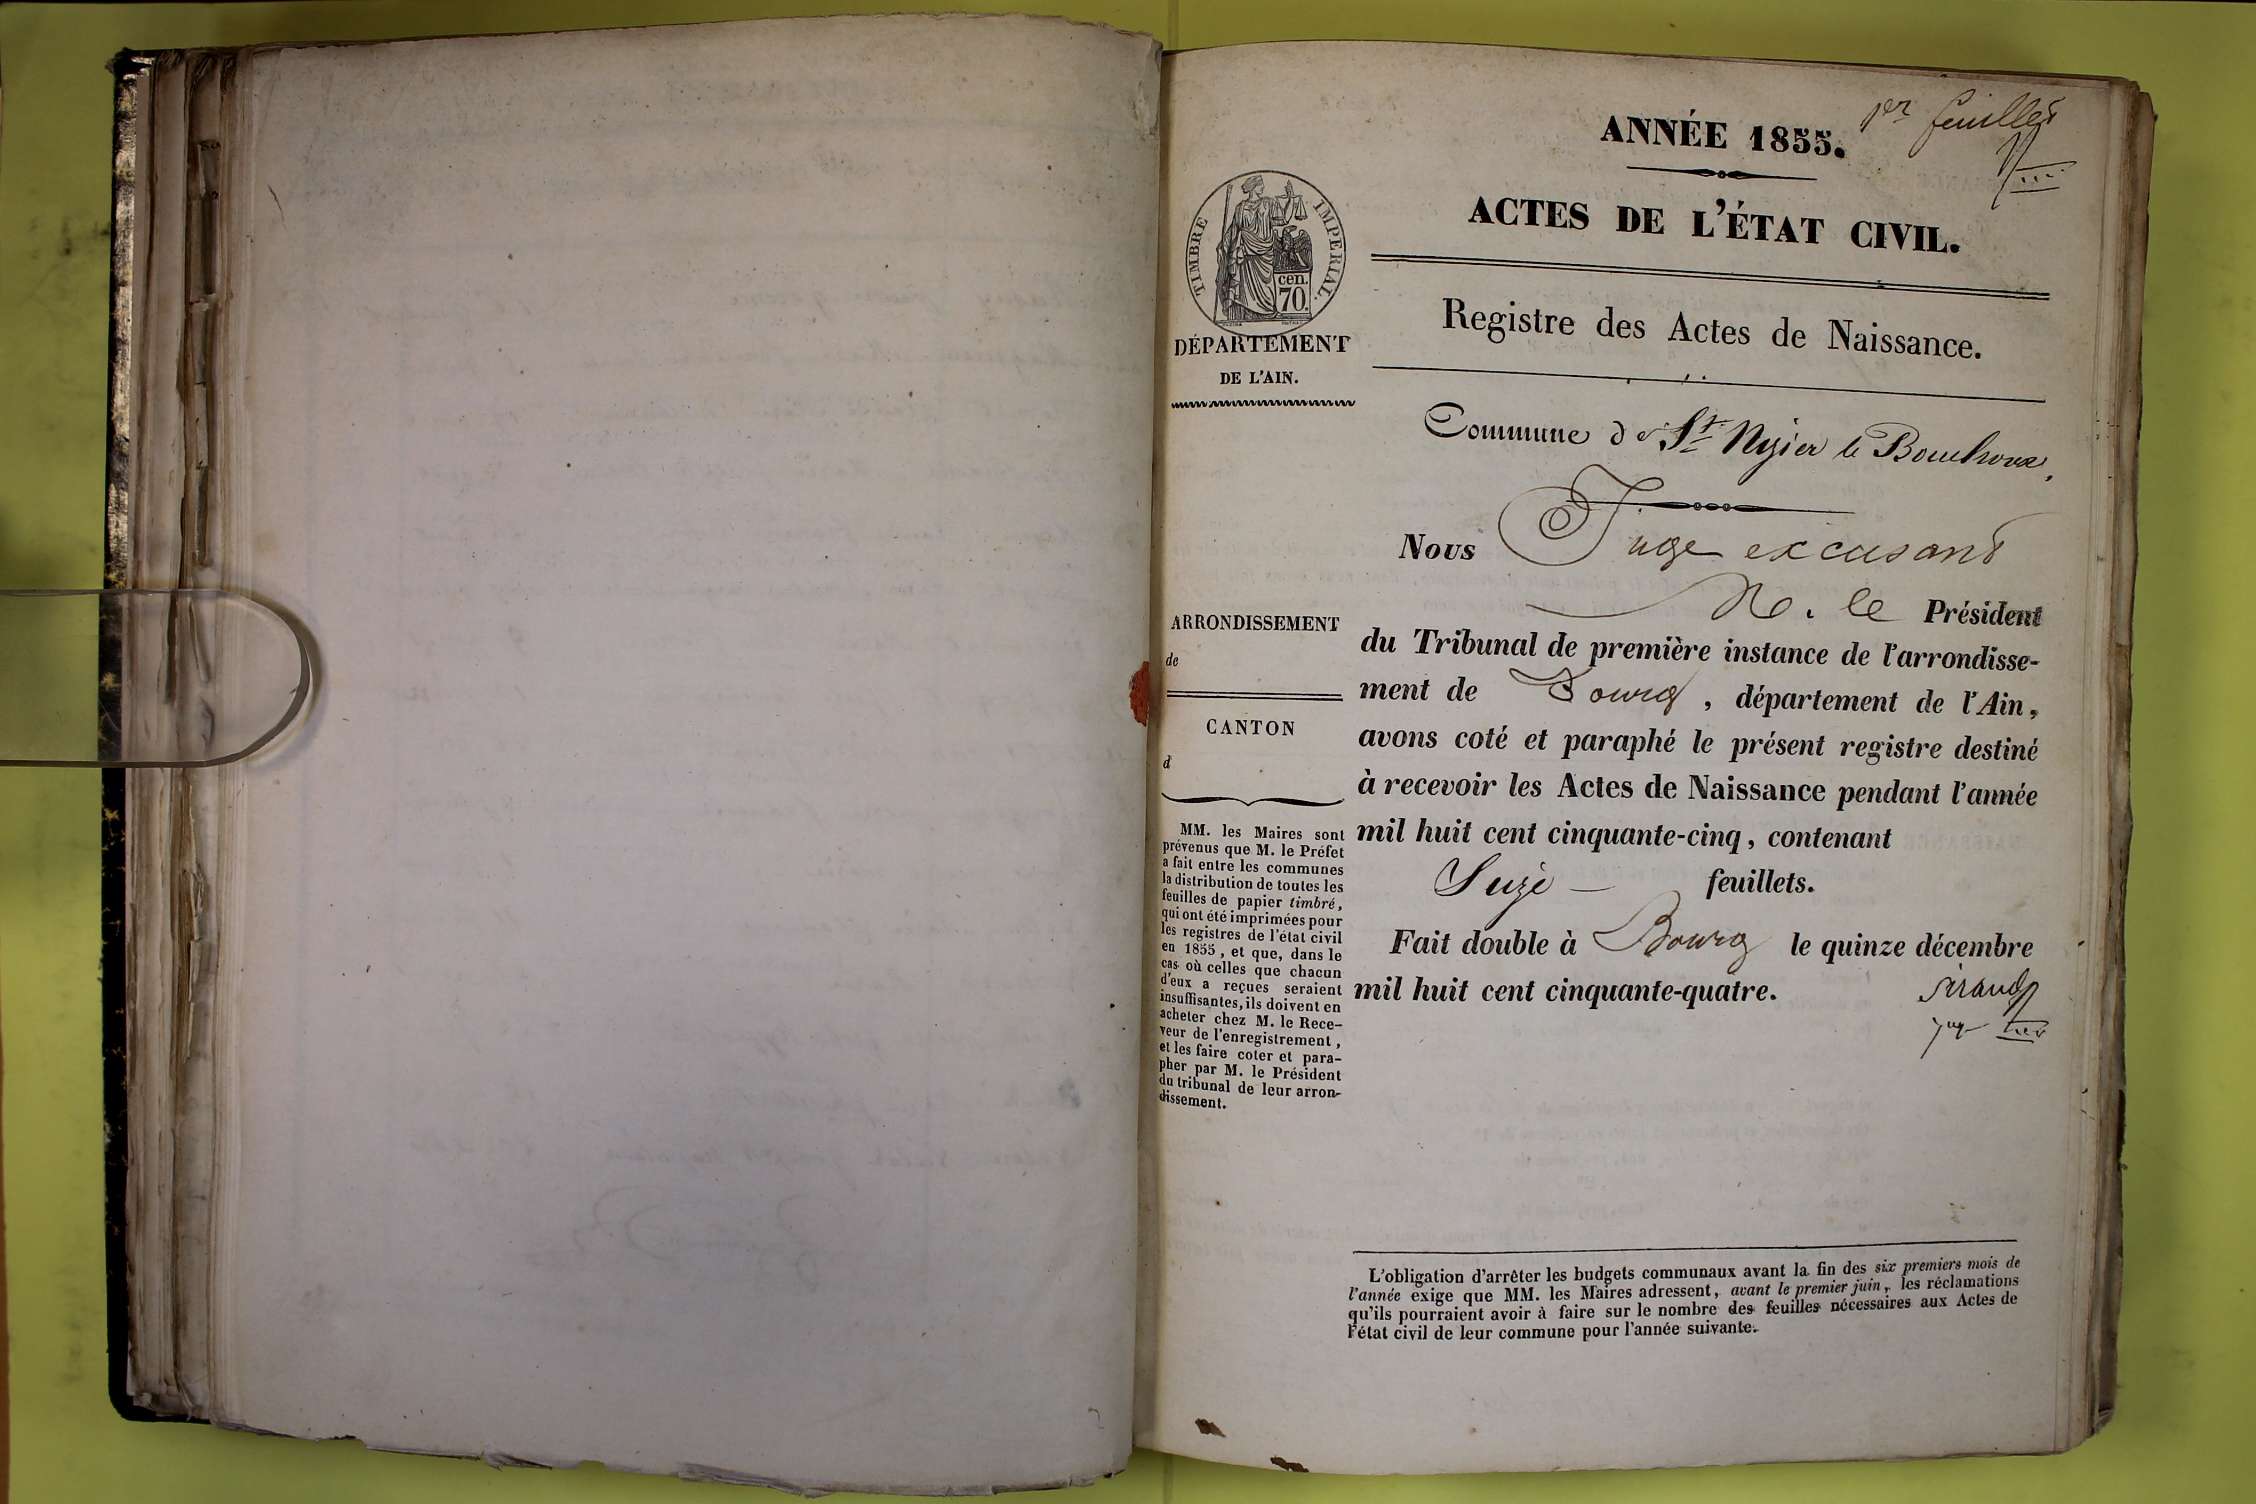 1er feuillet
ANNÉE 1855.
ACTES DE L'ÉTAT CIVIL.
TIMBRE IMPERIAL.
cen.
70.
DÉPARTEMENT
DE L'AIN.
Registre des Actes de Naissance.
Commune de St Nizier le Bouchoux,
Nous Juge excusant
M. le Président
du Tribunal de première instance de l'arrondisse-
ment de Bourg, département de l'Ain,
avons coté et paraphé le présent registre destiné
à recevoir les Actes de Naissance pendant l'année
mil huit cent cinquante-cinq, contenant
Seize — feuillets.
Fait double à Bourg le quinze décembre
mil huit cent cinquante-quatre.
ARRONDISSEMENT
de
CANTON
d
MM. les Maires sont
prévenus que M. le Préfet
a fait entre les communes
la distribution de toutes les
feuilles de papier timbré,
qui ont été imprimées pour
les registres de l'état civil
en 1855, et que, dans le
cas où celles que chacun
d'eux a reçues seraient
insuffisantes, ils doivent en
acheter chez M. le Rece-
veur de l'enregistrement,
et les faire coter et para-
pher par M. le Président
du tribunal de leur arron-
dissement.
L'obligation d'arrêter les budgets communaux avant la fin des six premiers mois de
l'année exige que MM. les Maires adressent, avant le premier juin, les réclamations
qu'ils pourraient avoir à faire sur le nombre des feuilles nécessaires aux Actes de
l'état civil de leur commune pour l'année suivante.